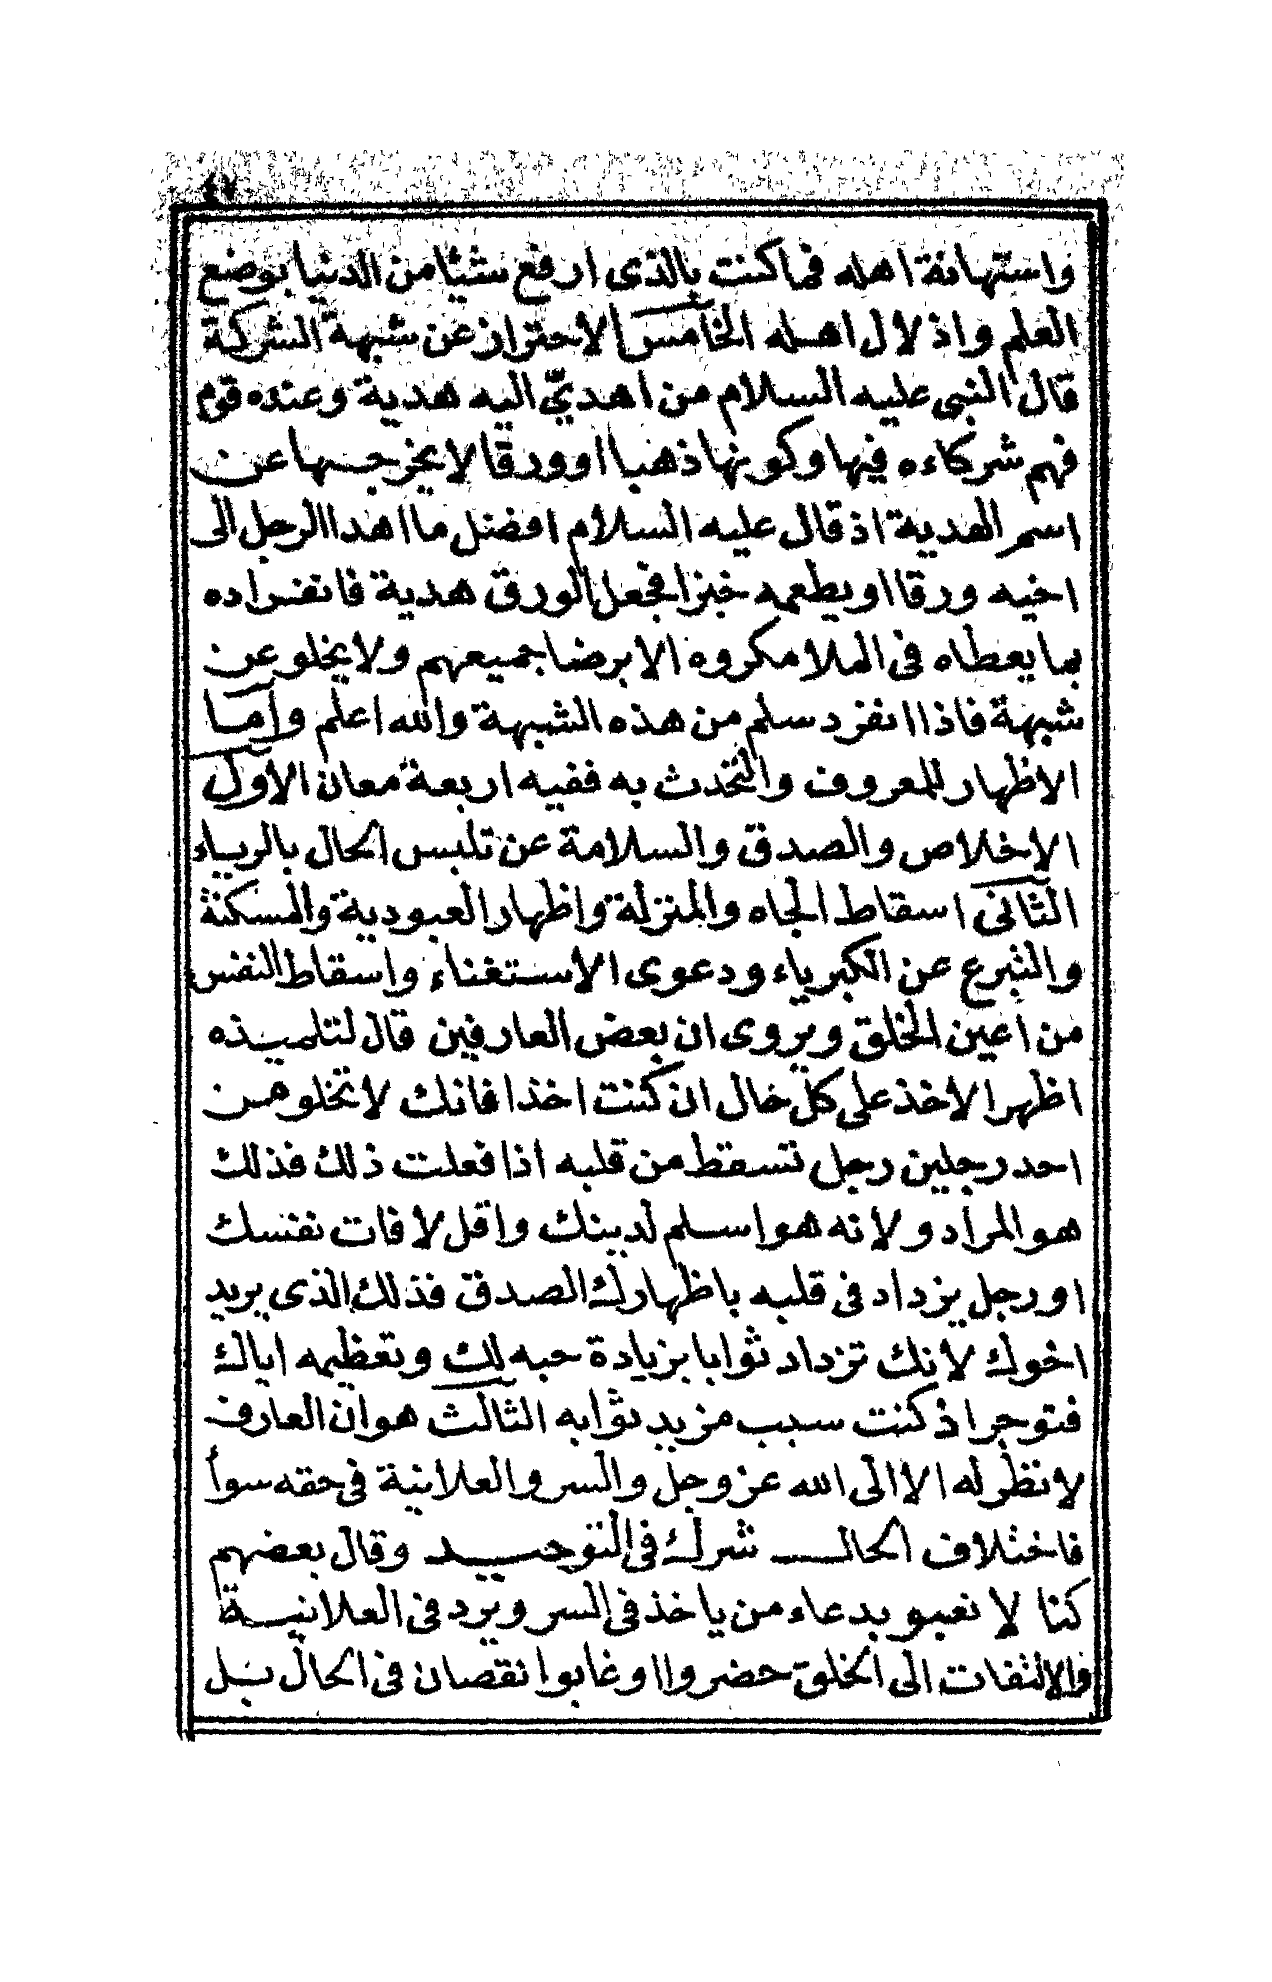 واستهانة اهله فما كنت بالذى ارفع شيئا من الدنيا بوضع
العلم واذلال اهله الخامس الاحتراز عن شبهة الشركة
قال النبى عليه السلام من اهدىّ اليه هدية وعنده قوم
فهم شركاءه فيها وكونها ذهبا او ورقا لا يخرجها عن
اسم الهدية اذ قال عليه السلام افضل ما اهدا الرجل الى
اخيه ورقا او يطعمه خبزا فجعل الورق هدية فانفراده
بما يعطاه فى الملا مكروه الا برضا جميعهم ولا يخلو عن
شبهة فاذا انفرد سلم من هذه الشبهة والله اعلم واما
الاظهار للمعروف والتحدث به ففيه اربعة معان الاول
الاخلاص والصدق والسلامة عن تلبس الحال بالرياء
الثانى اسقاط الجاه والمنزلة واظهار العبودية والمسكنة
والتبرع عن الكبرياء ودعوى الاستغناء واسقاط النفس
من اعين الخلق ويروى ان بعض العارفين قال لتلميذه
اظهر الاخذ على كل حال ان كنت اخذا فانك لا تخلو من
احد رجلين رجل تسقط من قلبه اذا فعلت ذلك فذلك
هو المراد ولانه هو اسلم لدينك واقل لافات نفسك
او رجل يزداد فى قلبه باظهارك الصدق فذلك الذى يريد
اخوك لانك تزداد ثوابا بزيادة حبه لك وتعظيمه اياك
فتوجر اذ كنت سبب مزيد ثوابه الثالث هو ان العارف
لا نظر له الا الى الله عز وجل والسر والعلانية فى حقه سوأ
فاختلاف الحال شرك فى التوحيد وقال بعضهم
كنا لا نعبو بدعاء من ياخذ فى السر ويرد فى العلانية
والالتفات الى الخلق حضروا او غابوا نقصان فى الحال بل